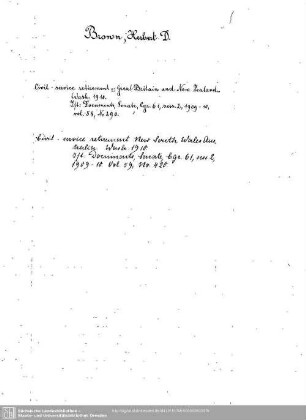 Brown, Herbert D.
Civil-service retirement, Great Britain and New Zealand.
Wash. 1910.
Jst: Documents, Senate, Cgr. 61, sess. 2, 1909-10,
vol. 58, No 290.
Civil-service retirement New South Wales Aus-
tralia. Wash. 1910
Jst: Documents, Senate, Cgr. 61, sess 2,
1909-10 Vol. 59, Nr. 420
Sächsische Landesbibliothek -
Staats- und Universitätsbibliothek Dresden